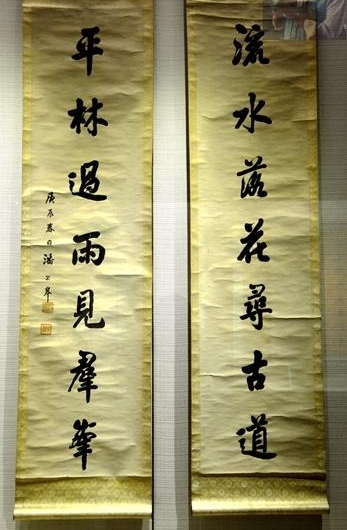 流水落花尋古道
平林過雨見羣峯
庚辰春月潘皋